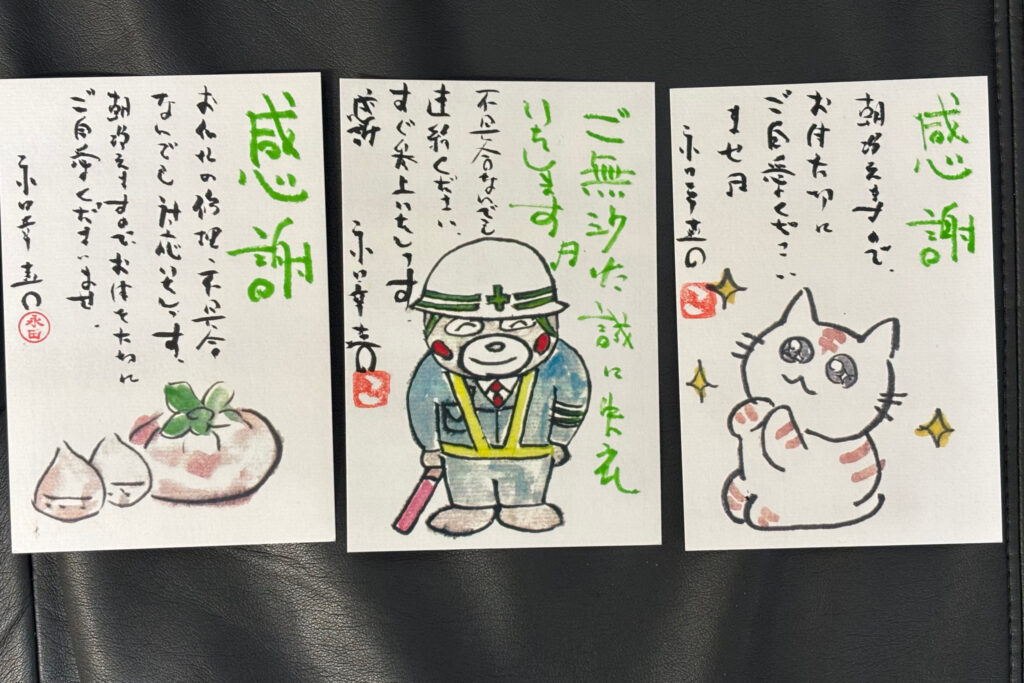 感謝
の修理、不具合
なんでも対応いたします、
朝冷えますので、お体を大切に
ご自愛くださいませ、
永田幸喜
永田
ご無沙汰誠に失礼
いたします
不具合なんでも
連絡ください、
すぐ参上いたします
感謝
永田幸喜
感謝
朝冷えますので、
お体大切に
ご自愛ください
永田幸喜